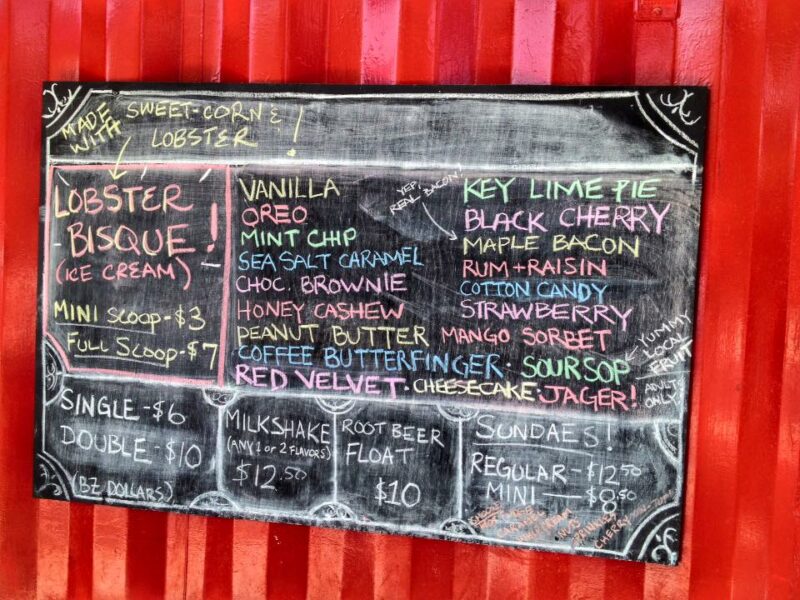 MADE WITH
SWEET-CORN &
LOBSTER !
LOBSTER
BISQUE!
(ICE CREAM)
MINI SCOOP-$3
FULL SCOOP-$7
VANILLA
OREO
MINT CHIP
SEA SALT CARAMEL
CHOC. BROWNIE
HONEY CASHEW
PEANUT BUTTER
COFFEE BUTTERFINGER ·
RED VELVET · CHEESECAKE · JAGER!
YEP!
REAL BACON!
KEY LIME PIE
BLACK CHERRY
MAPLE BACON
RUM + RAISIN
COTTON CANDY
STRAWBERRY
MANGO SORBET
SOURSOP
YUMMY
LOCAL
FRUIT
ADLT
ONLY
SINGLE-$6
DOUBLE-$10
(BZ DOLLARS)
MILKSHAKE
(ANY 1 or 2 FLAVORS)
$12.50
ROOT BEER
FLOAT
$10
SUNDAES!
REGULAR-$12.50
MINI — $8.50
NUTS
CHERRY